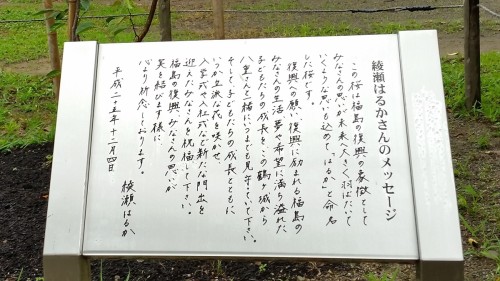 綾瀬はるかさんのメッセージ
この桜は福島の復興の象徴として
みなさんの思いが未来へ大きく羽ばたいて
いくような思いも込めて、「はるか」と命名
した桜です。
復興への願い、復興に励まれる福島の
みなさんの生活、夢や希望に満ち溢れた
子どもたちの成長を、この鶴ヶ城から
八重さんと一緒にいつまでも見守っていて下さい。
そして子どもたちの成長とともに
いつか立派な花を咲かせ、
入学式や入社式など新たな門出を
迎えたみなさんを祝福して下さい。
福島の復興、みなさんの思いが
実を結びます様に
心より祈念しております。
平成二十五年十二月四日
綾瀬はるか